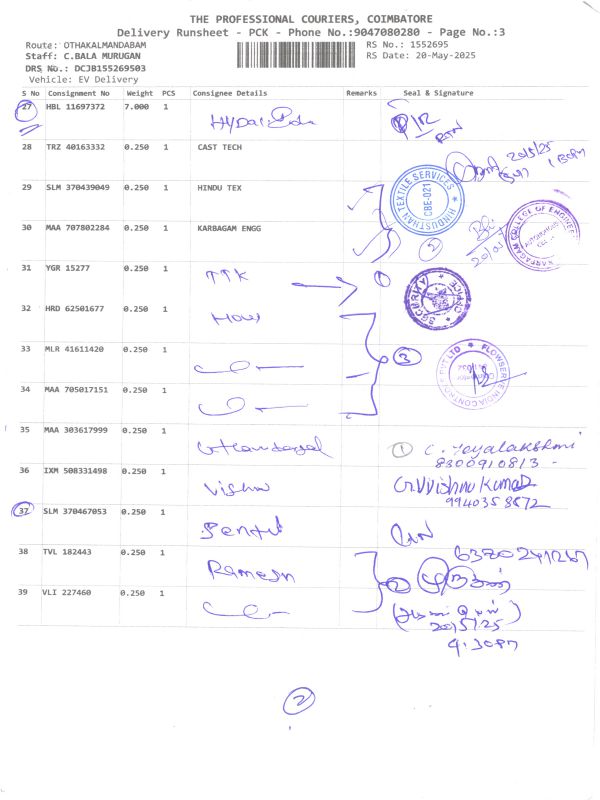 THE PROFESSIONAL COURIERS, COIMBATORE
Delivery Runsheet - PCK - Phone No.:9047080280 - Page No.:3
Route: OTHAKALMANDABAM RS No.: 1552695
Staff: C.BALA MURUGAN RS Date: 20-May-2025
DRS No.: DCJB155269503
Vehicle: EV Delivery
S No Consignment No Weight PCS Consignee Details Remarks Seal & Signature
27 HBL 11697372 7.000 1
28 TRZ 40163332 0.250 1 CAST TECH
29 SLM 370439049 0.250 1 HINDU TEX
HINDUSTHAN TEXTILE SERVICES CBE-021
30 MAA 707802284 0.250 1 KARBAGAM ENGG
31 YGR 15277 0.250 1 TTK 1
32 HRD 62501677 0.250 1
33 MLR 41611420 0.250 1 3
34 MAA 705017151 0.250 1
35 MAA 303617999 0.250 1 1 C. Jeyalakshmi
8300910813 -
36 IXM 508331498 0.250 1 Vishnu G.Vishnu Kumar
9940358672
37 SLM 370467053 0.250 1 Senthil
6380241267
38 TVL 182443 0.250 1 Ramesh 2
39 VLI 227460 0.250 1
4.30Pm
2